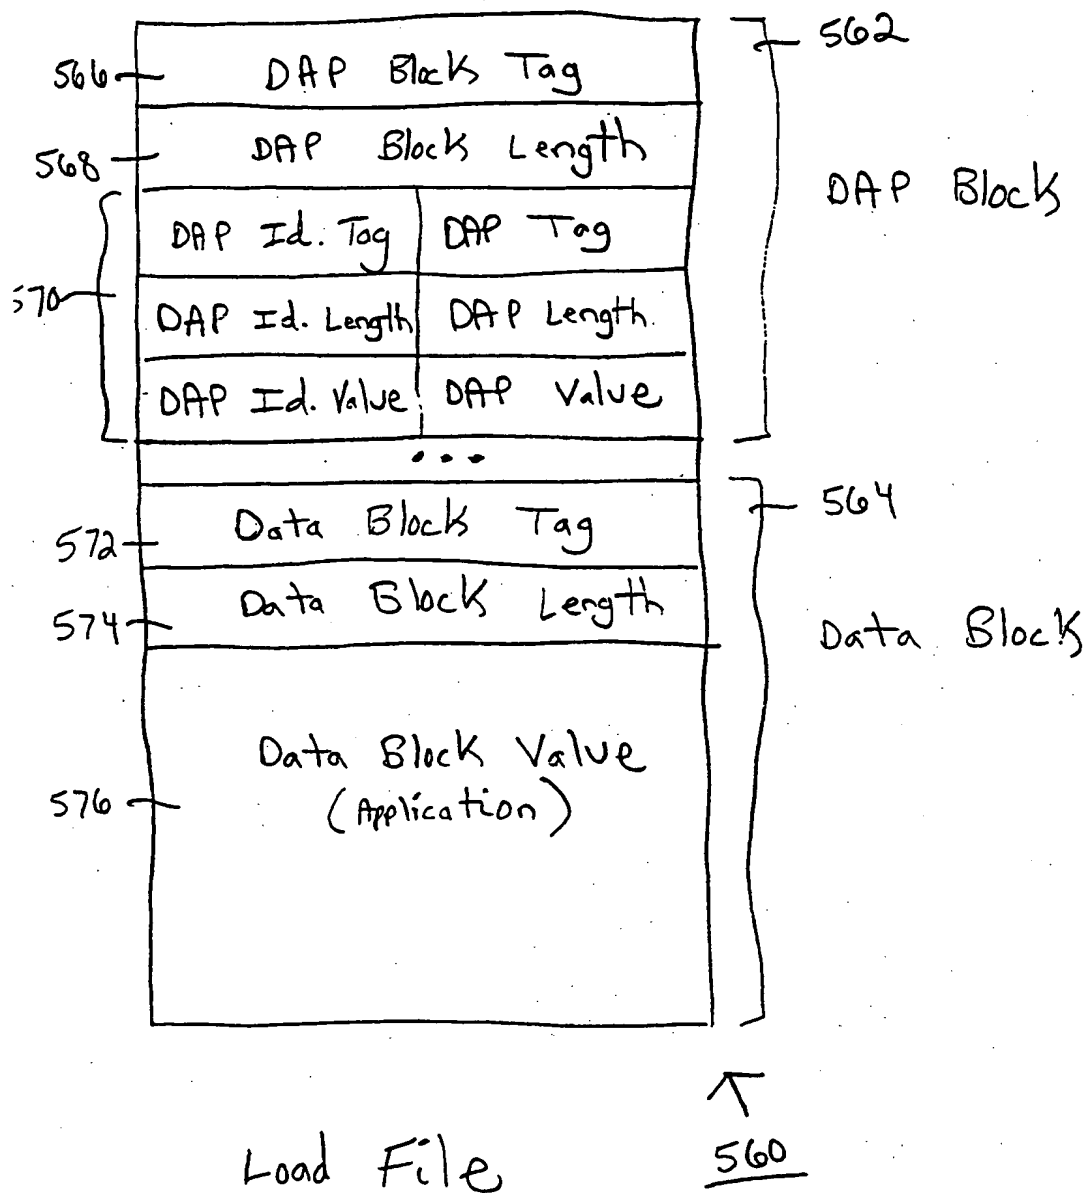 562
566 DAP Block Tag
568 DAP Block Length
DAP Block
DAP Id. Tag DAP Tag
570 DAP Id. Length DAP Length
DAP Id. Value DAP Value
...
564
572 Data Block Tag
574 Data Block Length
Data Block
Data Block Value
576 (Application)
Load File 560